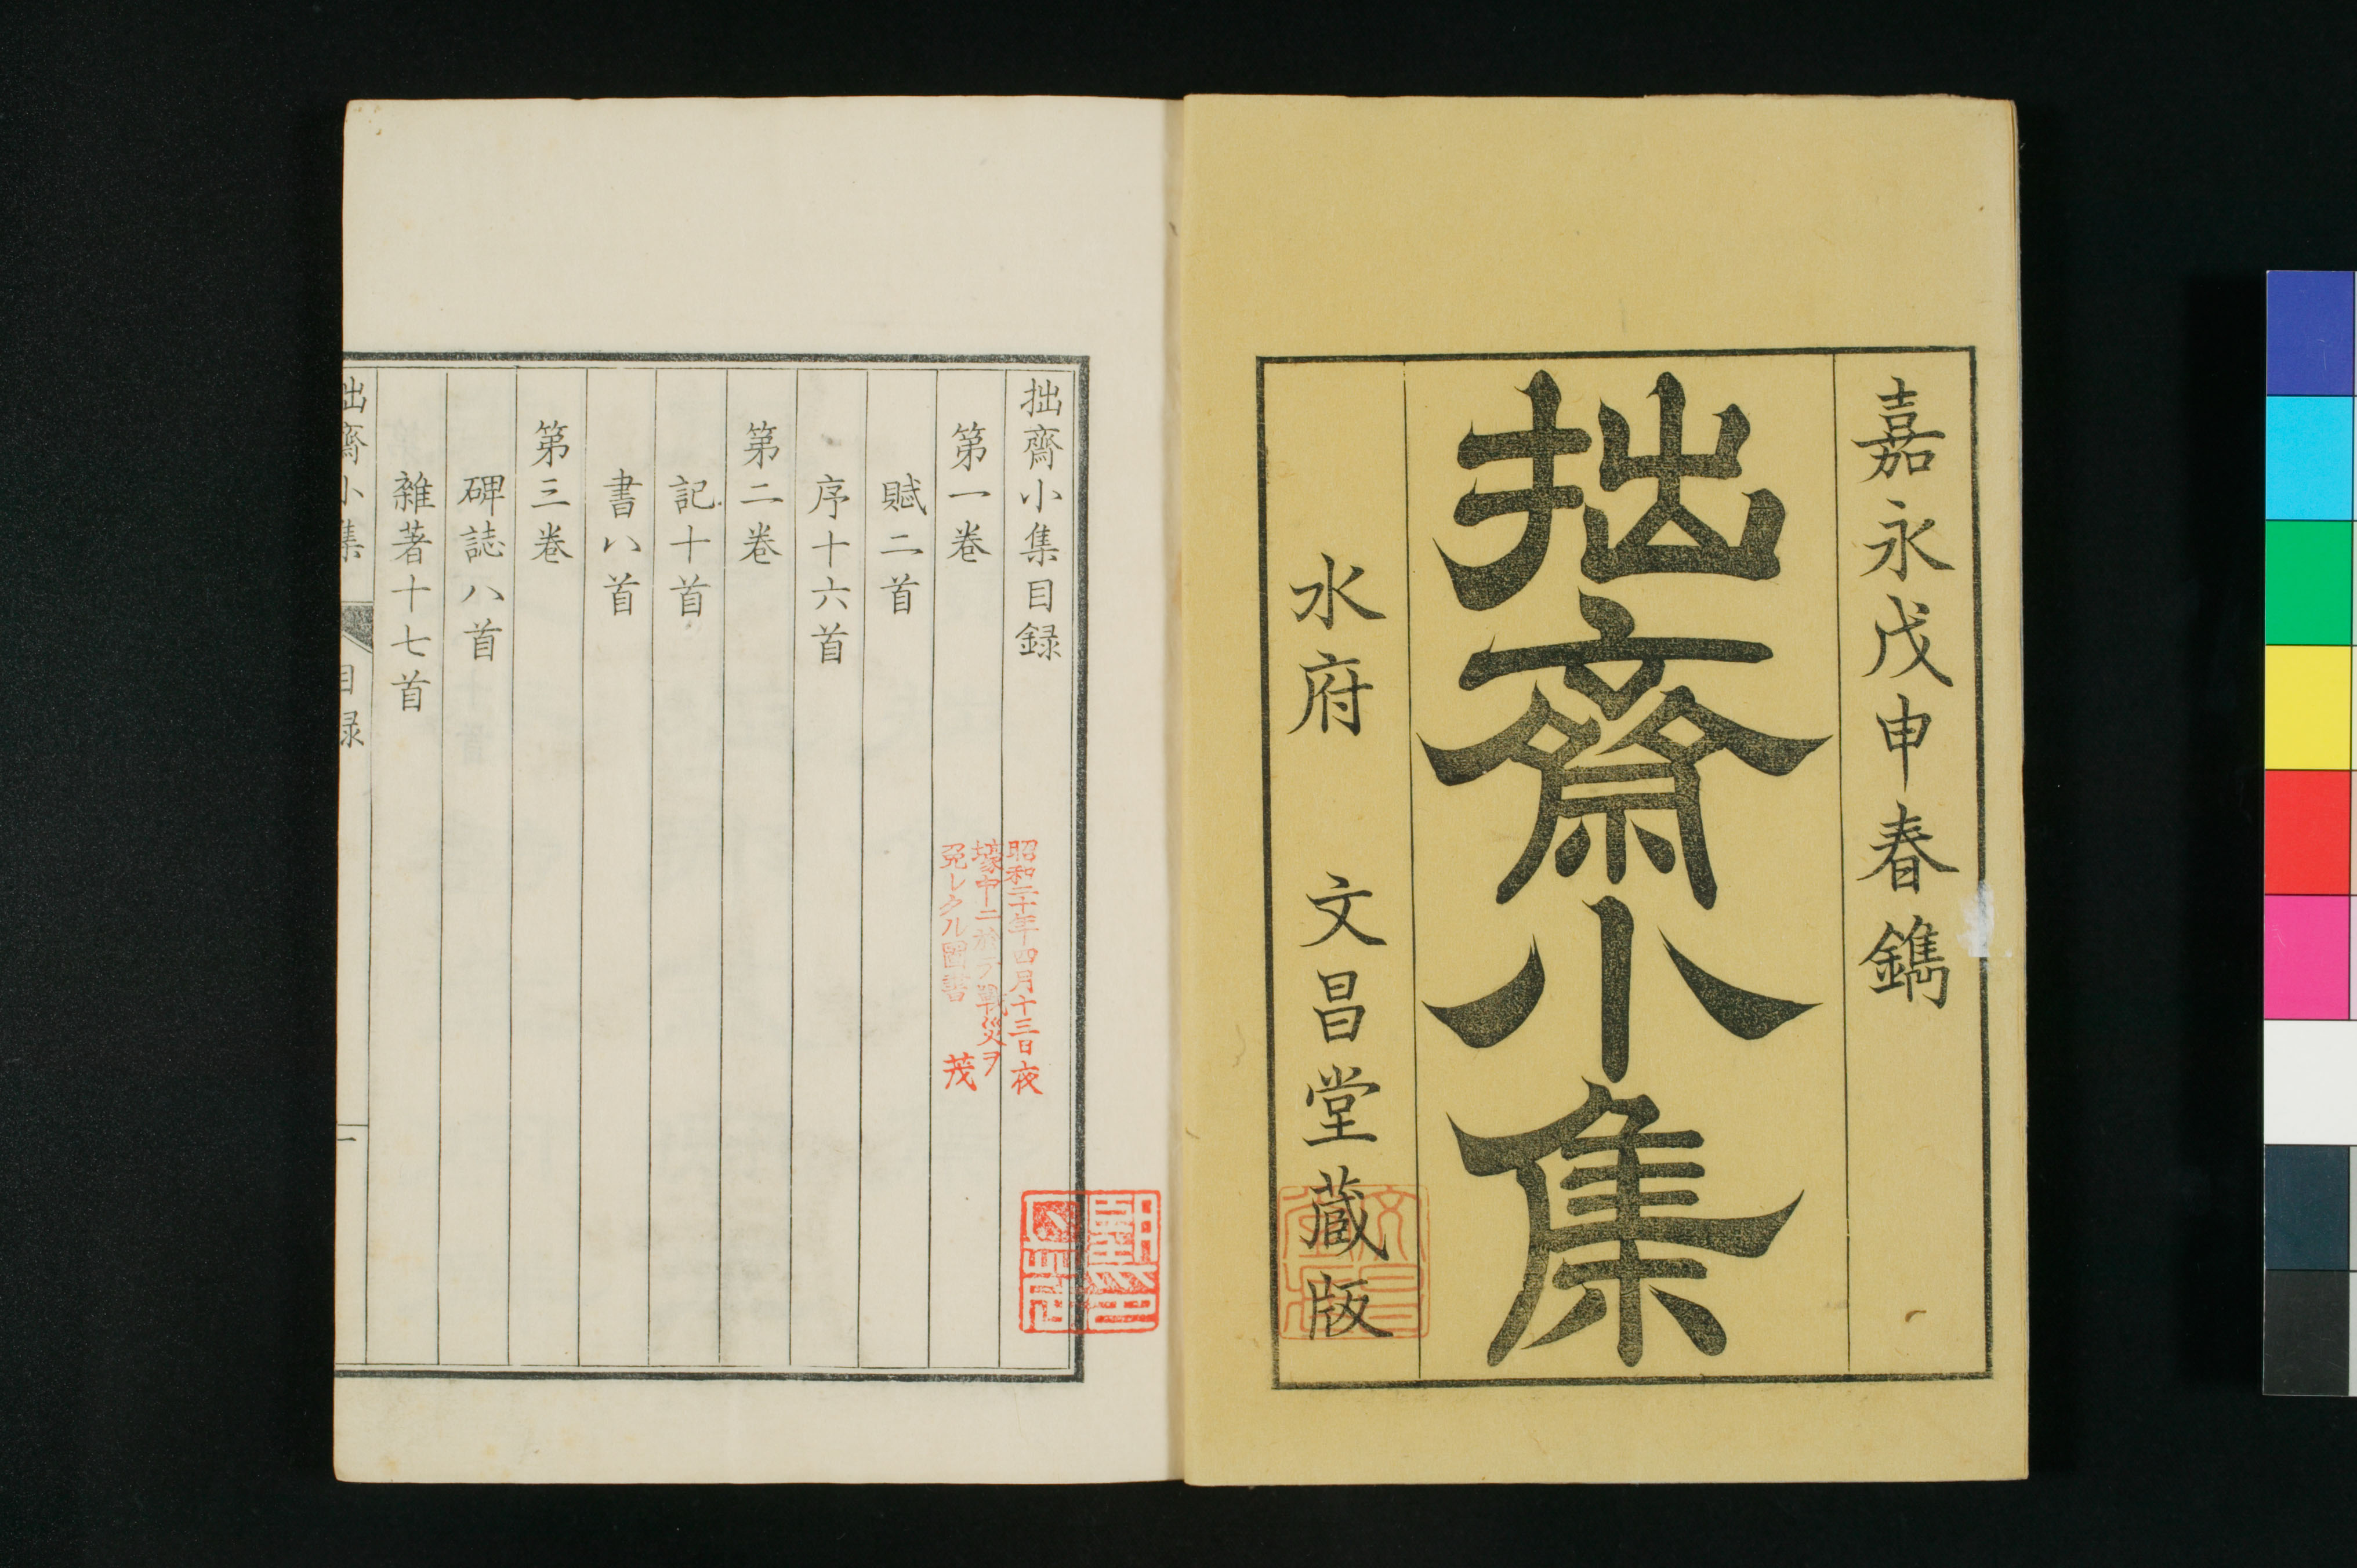 嘉永戊申春鐫
拙齋小集
水府 文昌堂藏版
拙齋小集目録
第一卷
賦二首
序十六首
第二卷
記十首
書八首
第三卷
碑誌八首
雜著十七首
拙齋小集 目録 一
昭和二十年四月十三日夜
壕中ニ於テ戰災ヲ
免レタル圖書 茂